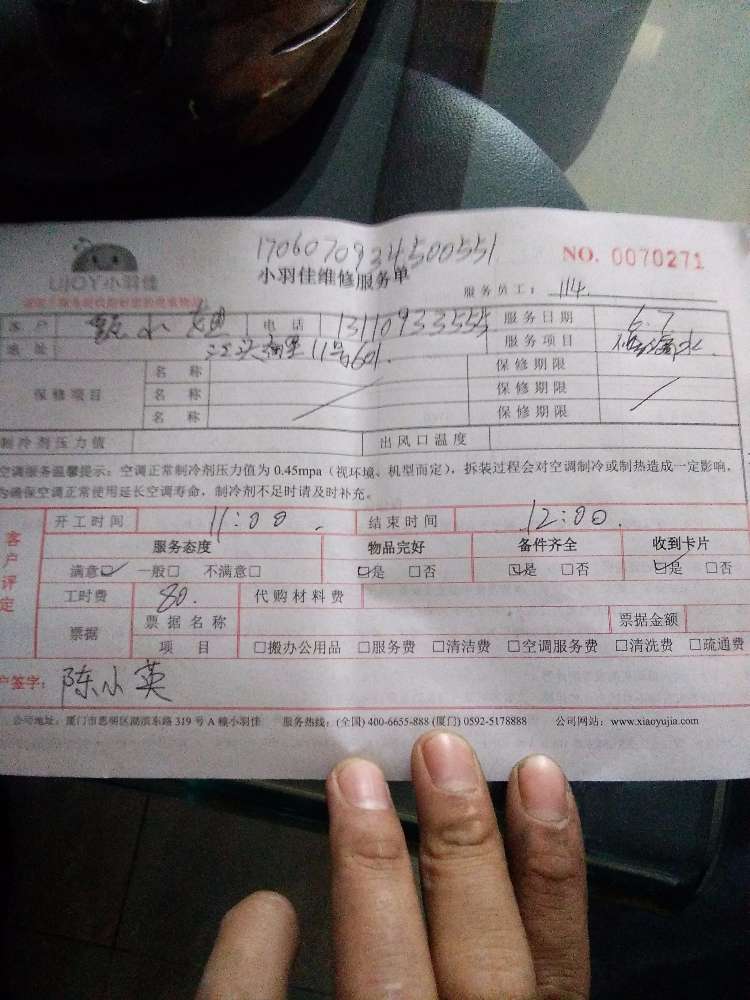 1706070924500551
UJOY小羽佳
小羽佳维修服务单
NO. 0070271
服务员工： 114.
客 户 甄小姐 电 话 13110933555 服务日期 6.7
地 址 11号601. 服务项目 水.
保修项目 名 称 保修期限
名 称 保修期限
名 称 保修期限
制冷剂压力值 出风口温度
空调服务温馨提示：空调正常制冷剂压力值为 0.45mpa（视环境、机型而定），拆装过程会对空调制冷或制热造成一定影响，
为确保空调正常使用延长空调寿命，制冷剂不足时请及时补充。
客户评定
开工时间 11:00. 结束时间 12:00.
服务态度 物品完好 备件齐全 收到卡片
满意☑ 一般□ 不满意□ ☑是 □否 ☑是 □否 ☑是 □否
工时费 80. 代购材料费
票据 票据名称 票据金额
项 目 □搬办公用品 □服务费 □清洁费 □空调服务费 □清洗费 □疏通费
户签字： 陈小英
公司地址：厦门市思明区湖滨东路 319 号 A 幢小羽佳 服务热线：(全国) 400-6655-888 (厦门) 0592-5178888 公司网站：www.xiaoyujia.com